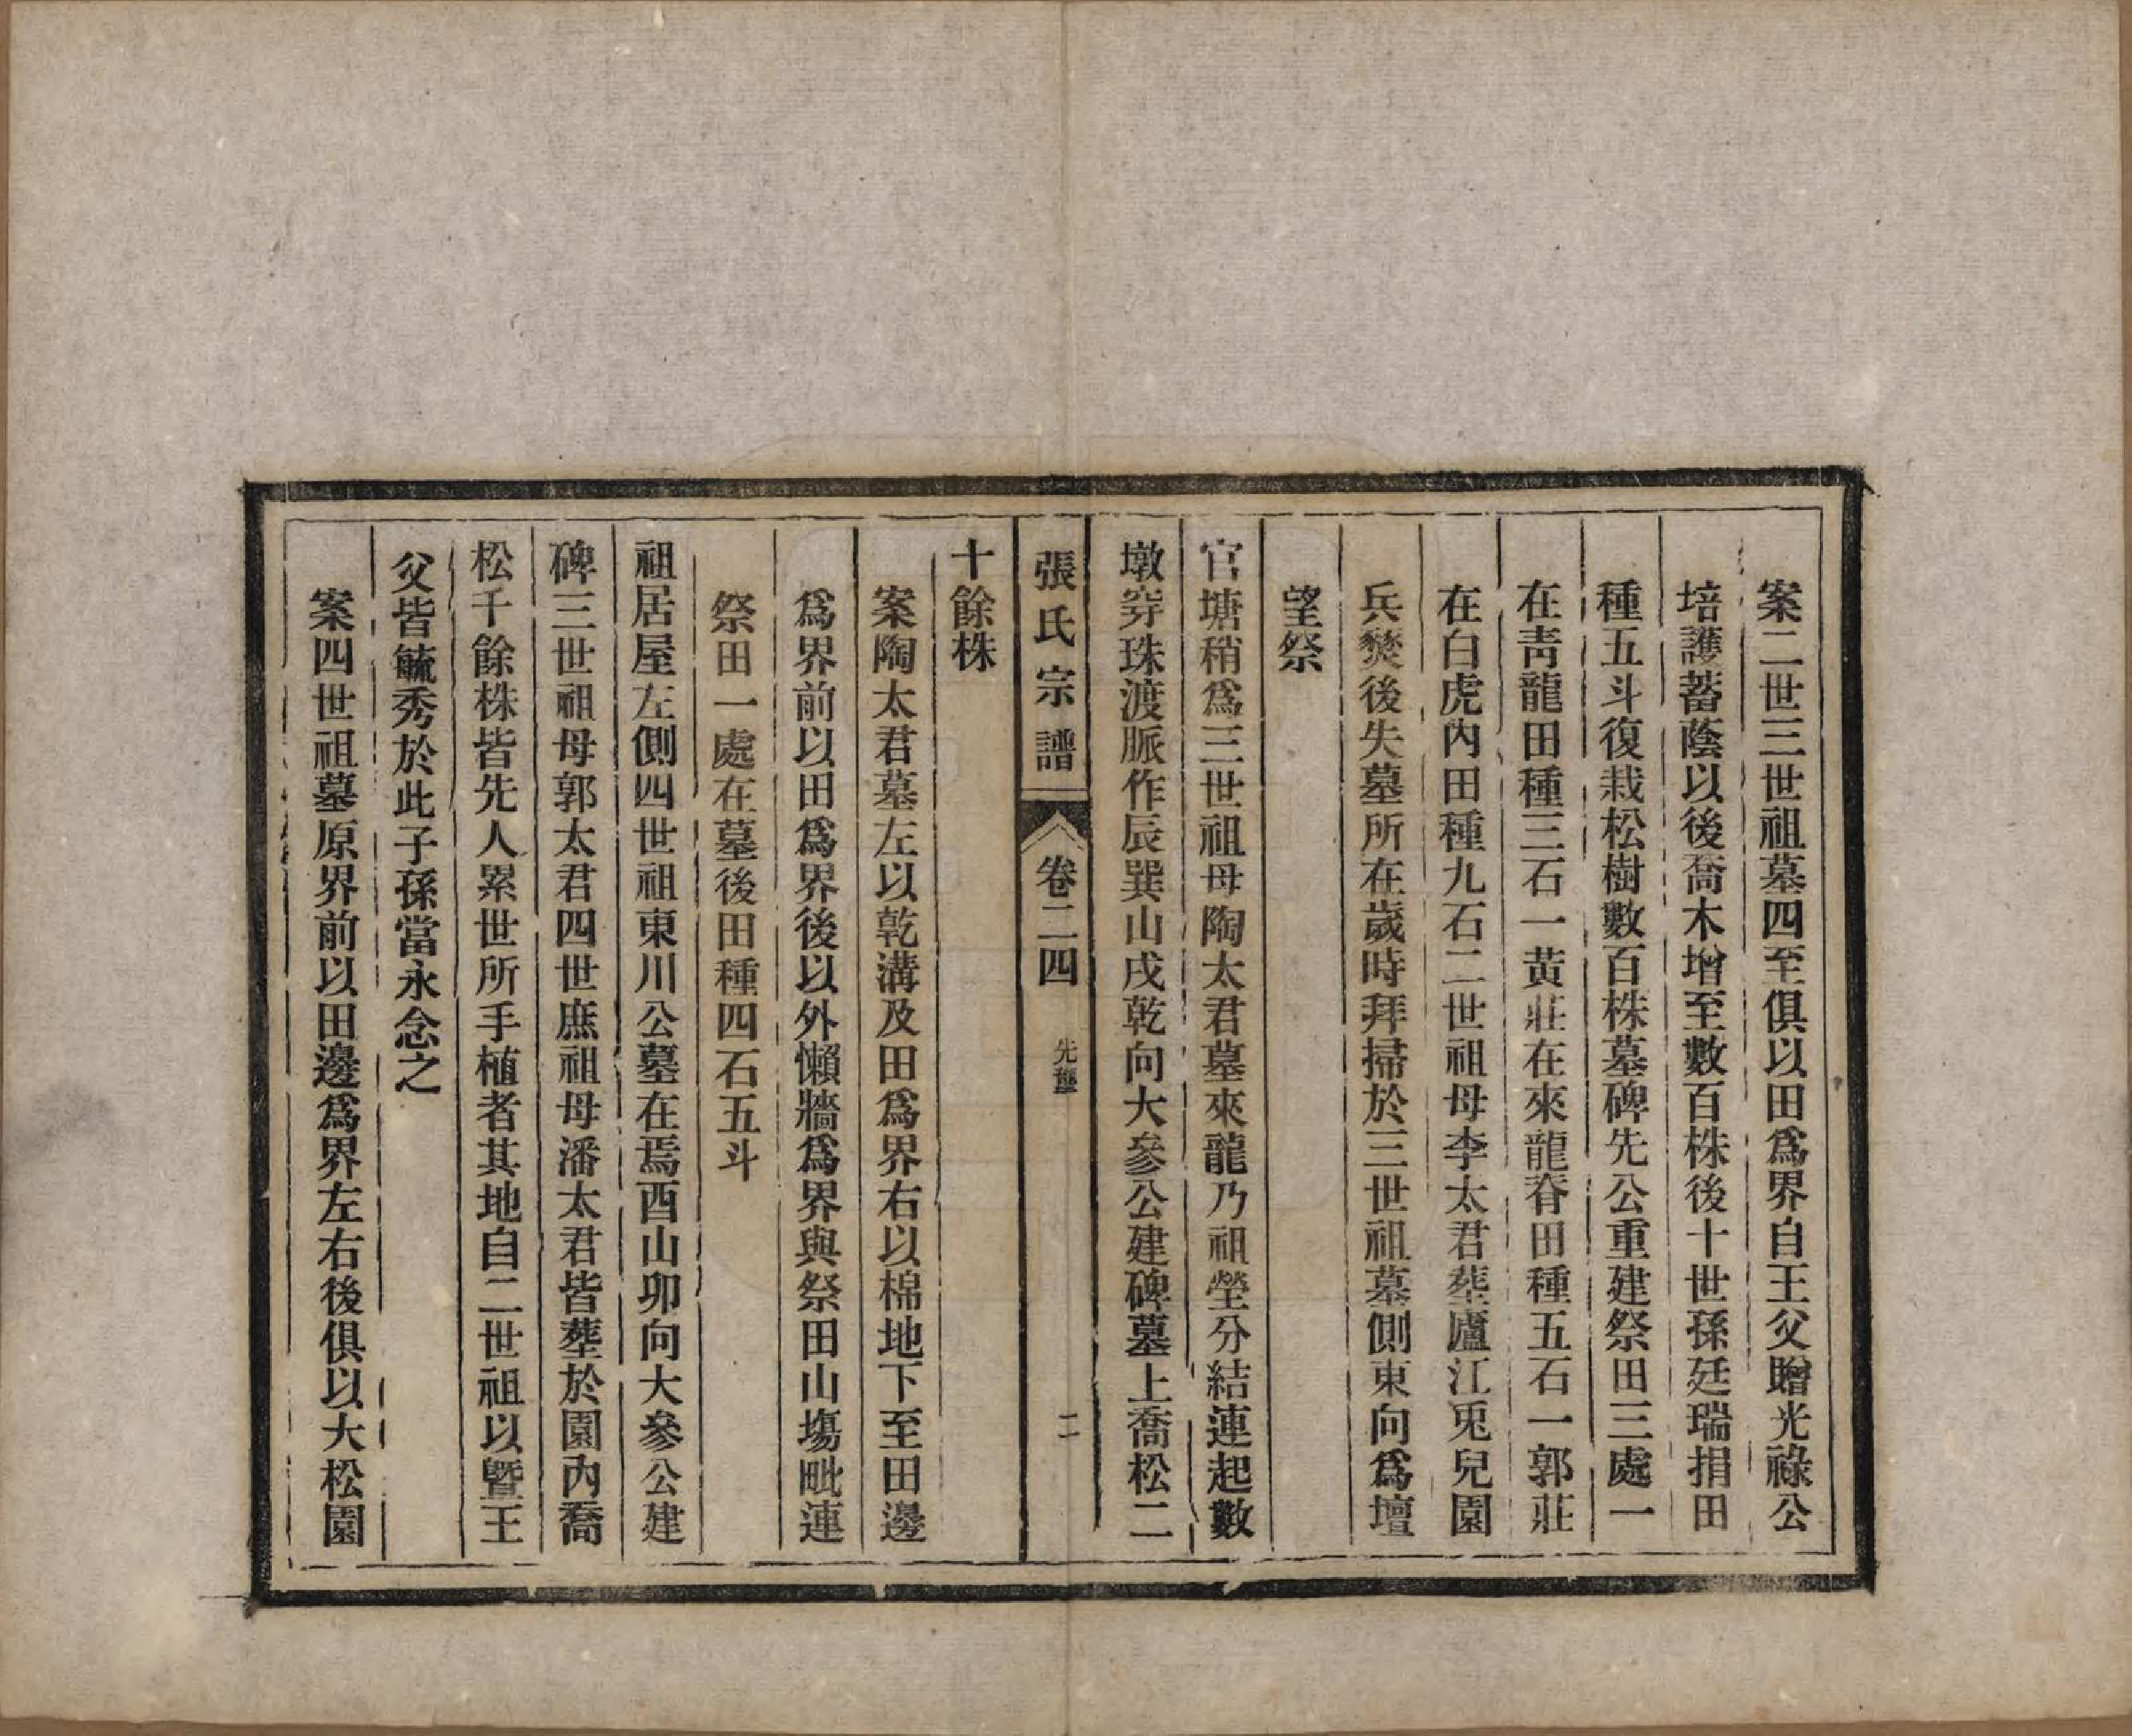 案二世三世祖墓四至俱以田爲界自王父贈光祿公
培護蓄蔭以後喬木增至數百株後十世孫廷瑞捐田
種五斗復栽松樹數百株墓碑先公重建祭田三處一
在靑龍田種三石一黄莊在來龍脊田種五石一郭莊
在白虎內田種九石二世祖母李太君葬廬江兎兒園
兵燹後失墓所在歲時拜掃於三世祖墓側東向爲壇
望祭
官塘稍爲三世祖母陶太君墓來龍乃祖塋分結連起數
墩穿珠渡脈作辰巽山戌乾向大參公建碑墓上喬松二
張氏宗譜
卷二四
先壟
二
十餘株
案陶太君墓左以乾溝及田爲界右以棉地下至田邊
爲界前以田爲界後以外懶牆爲界與祭田山塲毗連
祭田一處在墓後田種四石五斗
祖居屋左側四世祖東川公墓在焉酉山卯向大參公建
碑三世祖母郭太君四世庶祖母潘太君皆葬於園內喬
松千餘株皆先人累世所手植者其地自二世祖以曁王
父皆毓秀於此子孫當永念之
案四世祖墓原界前以田邊爲界左右後俱以大松園